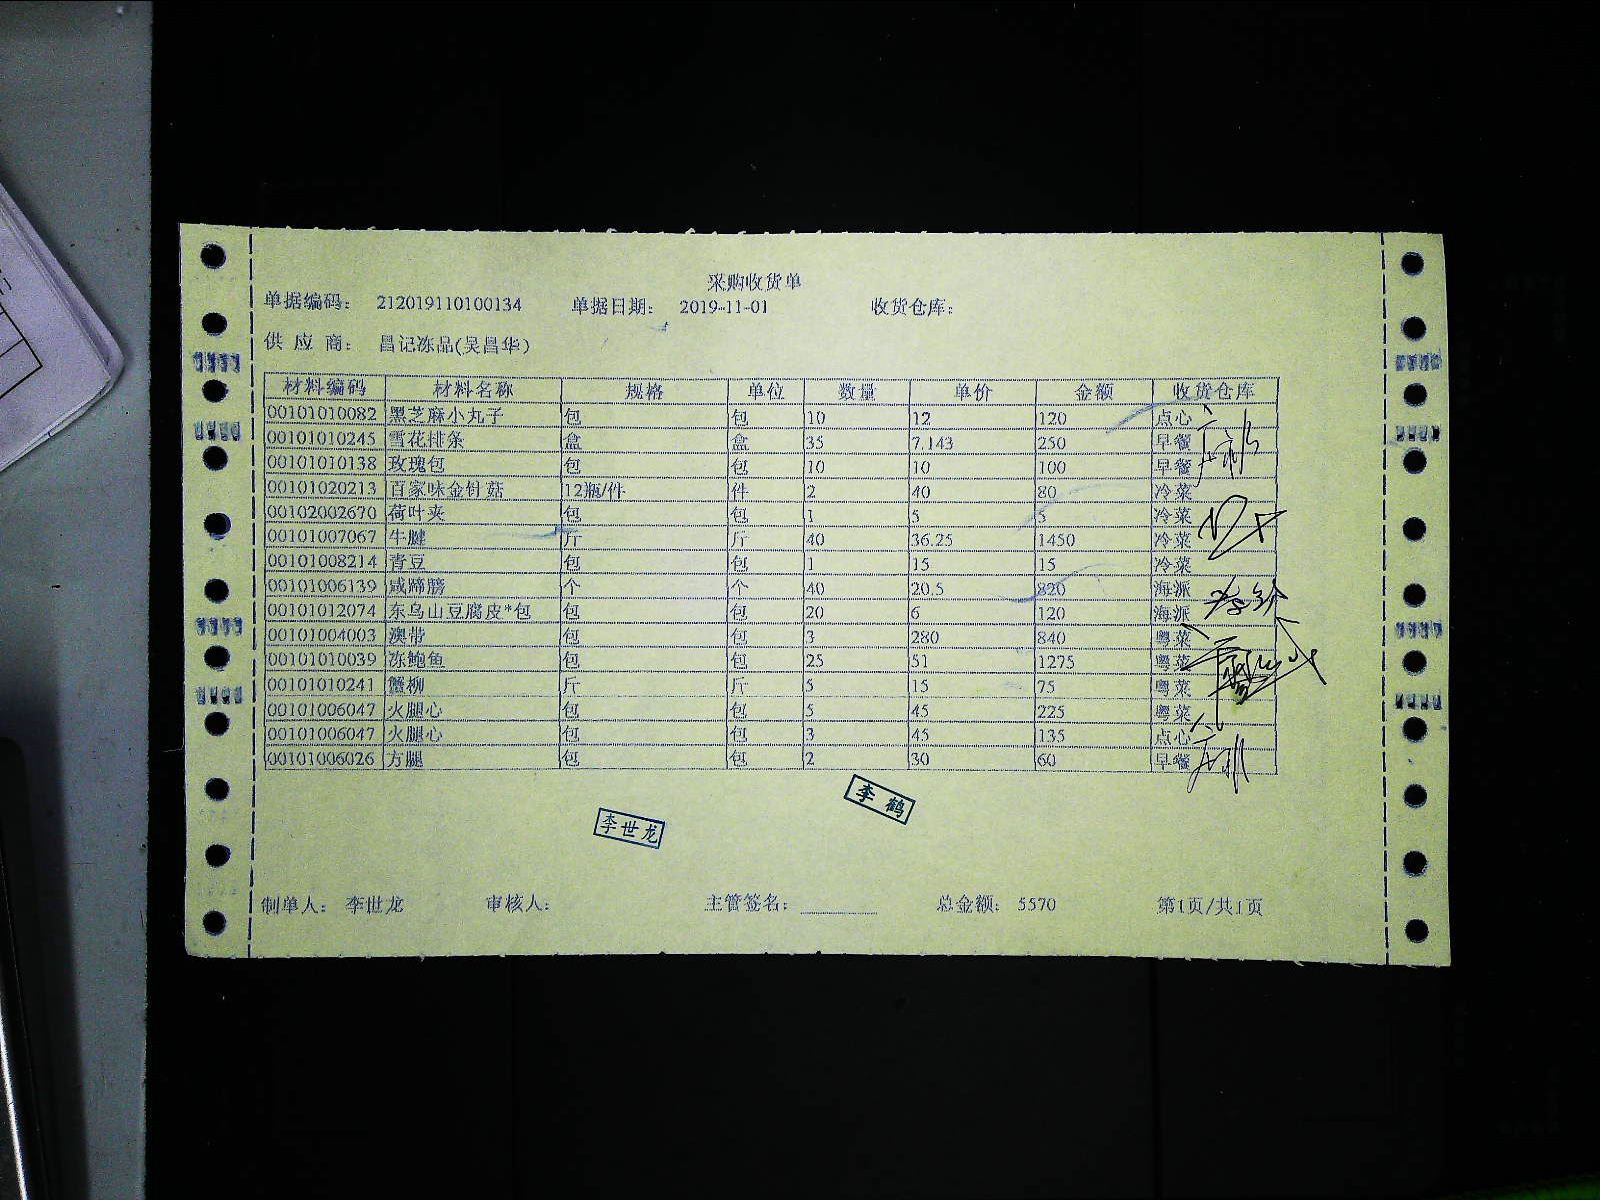 采购收货单
单据编码： 212019110100134 单据日期： 2019-11-01 收货仓库：
供 应 商： 昌记冻品(吴昌华)
材料编码 材料名称 规格 单位 数量 单价 金额 收货仓库
00101010082 黑芝麻小丸子 包 包 10 12 120 点心
00101010245 雪花排条 盒 盒 35 7.143 250 早餐
00101010138 玫瑰包 包 包 10 10 100 早餐
00101020213 百家味金针菇 12瓶/件 件 2 40 80 冷菜
00102002670 荷叶夹 包 包 1 5 5 冷菜
00101007067 牛腱 斤 斤 40 36.25 1450 冷菜
00101008214 青豆 包 包 1 15 15 冷菜
00101006139 咸蹄膀 个 个 40 20.5 820 海派
00101012074 东乌山豆腐皮*包 包 包 20 6 120 海派
00101004003 澳带 包 包 3 280 840 粤菜
00101010039 冻鲍鱼 包 包 25 51 1275 粤菜
00101010241 蟹柳 斤 斤 5 15 75 粤菜
00101006047 火腿心 包 包 5 45 225 粤菜
00101006047 火腿心 包 包 3 45 135 点心
00101006026 方腿 包 包 2 30 60 早餐
李鹤
李世龙
制单人： 李世龙 审核人： 主管签名： 总金额： 5570 第1页/共1页